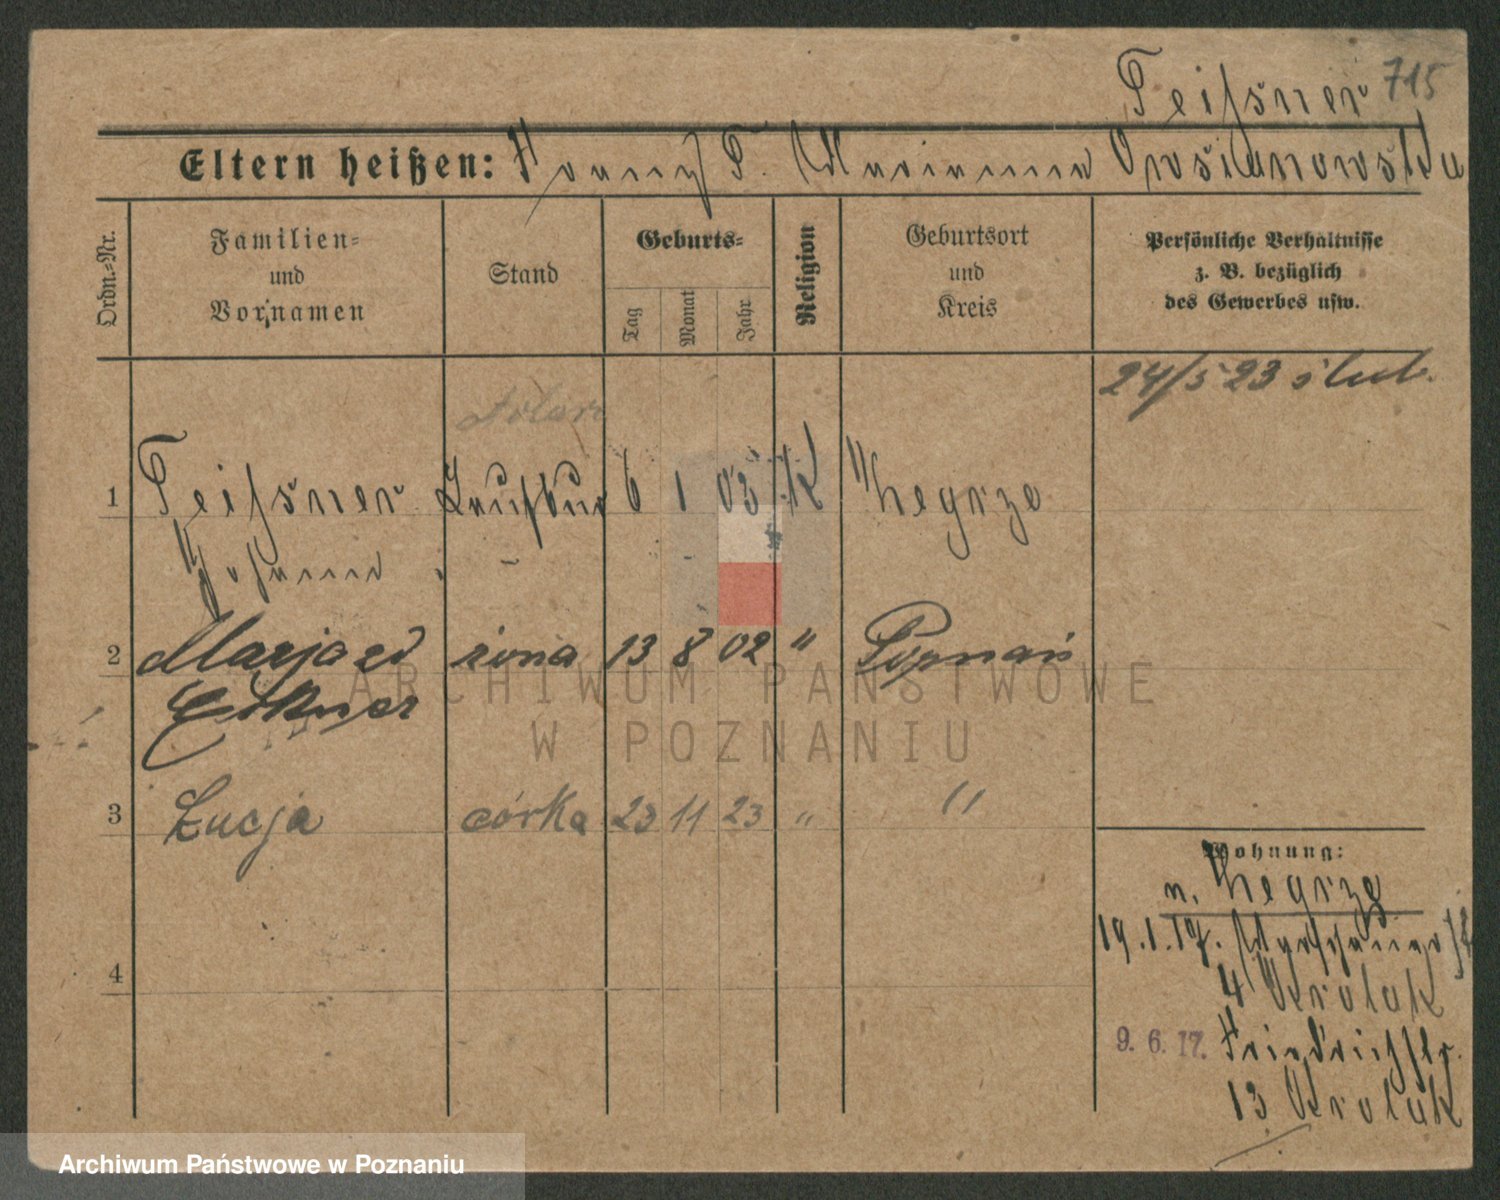 Teißner 715
Eltern heißen: Franz T. Marianna
Ordn.=Nr.
Familien=
und
Vornamen
Stand
Geburts=
Tag
Monat
Jahr
Religion
Geburtsort
und
Kreis
Persönliche Verhältnisse
z. B. bezüglich
des Gewerbes usw.
24/5 23 ślub.
stolarz
1 Teißner Laufbur 6 1 03 K Zegrze
Johann
2 Marja zd żona 13 8 02 " Poznań
3 Łucja córka 23 11 23 " "
4
Wohnung:
n. Zegrze
19.1.17.
4 Krolak
9. 6. 17. Friedrichstr.
13 Krolak
ARCHIWUM PAŃSTWOWE
W POZNANIU
Archiwum Państwowe w Poznaniu